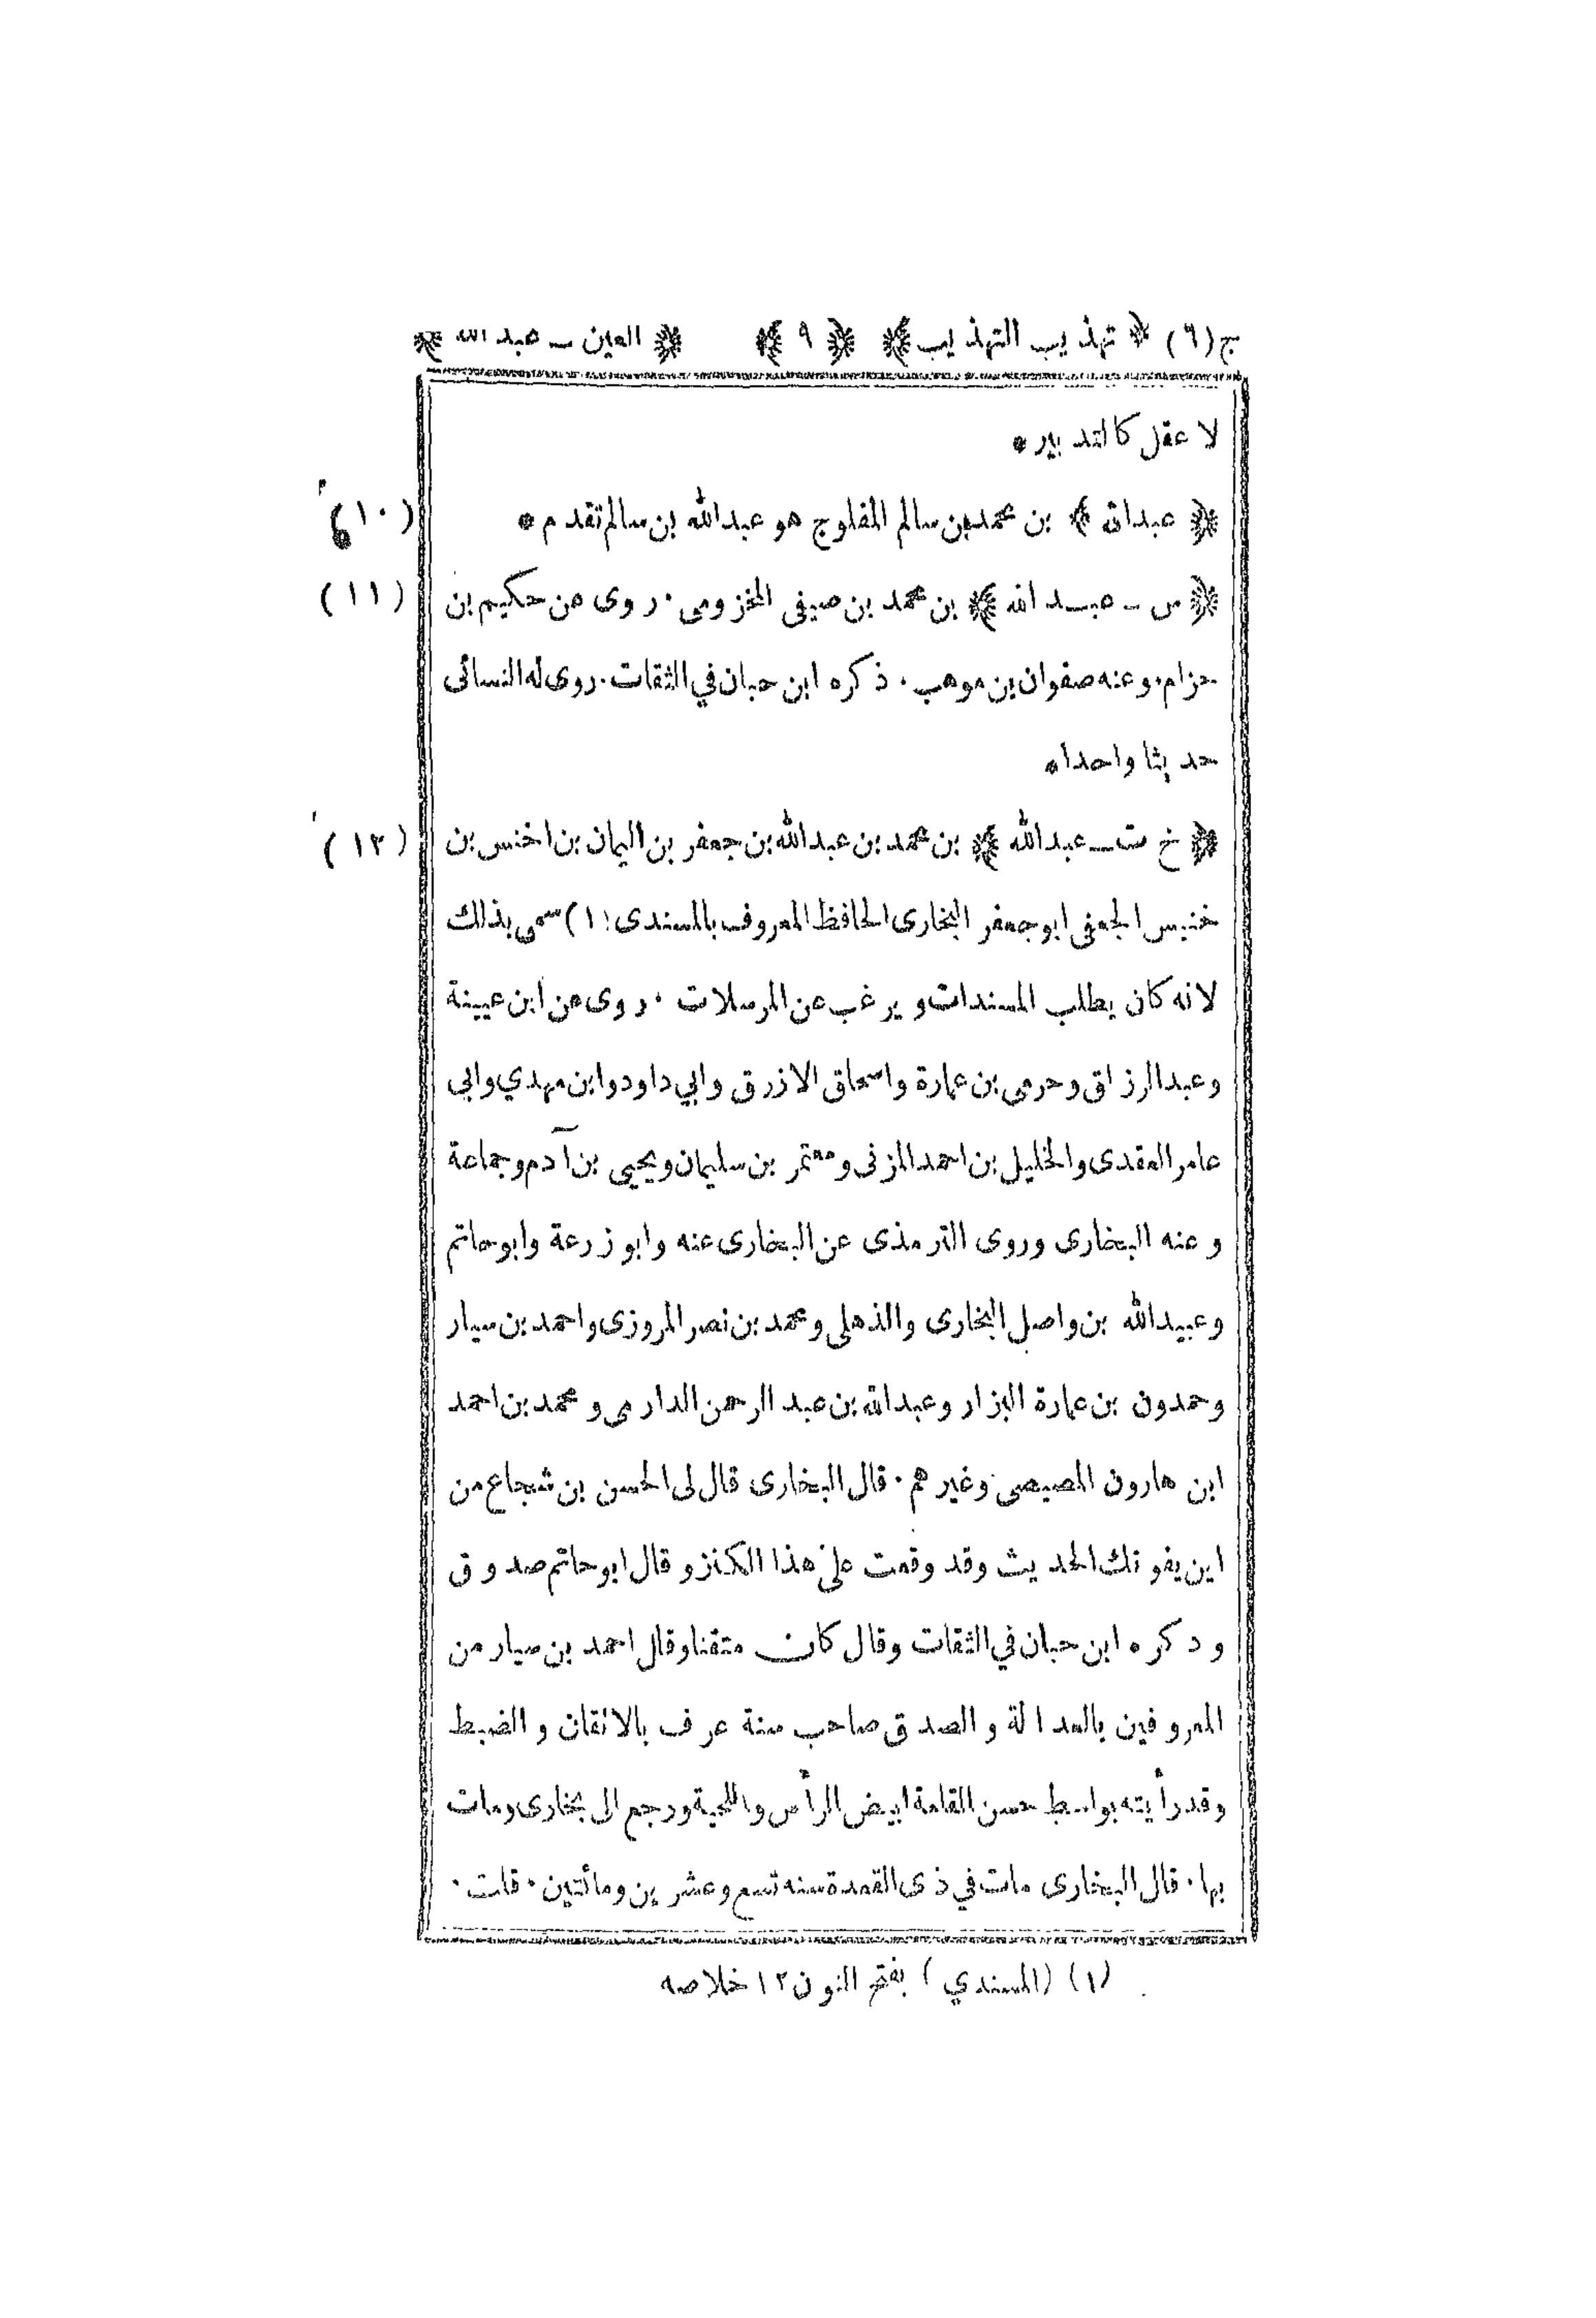 ج(٦) ﴿ تهذيب التهذيب ﴾ ﴿ ٩ ﴾ ﴿ العين ــ عبد الله ﴾
لا عقل كالتدبير *
(١٠) ﴿ عبدالله ﴾ بن محمد بن سالم المفلوج هو عبدالله بن سالم تقدم *
(١١) ﴿ س ــ عبد الله ﴾ بن محمد بن صيفى المخزومى . روى عن حكيم بن
حزام . وعنه صفوان بن موهب . ذكره ابن حبان في الثقات . روى له النسائى
حديثا واحدا *
(١٢) ﴿ خ ت ــ عبدالله ﴾ بن محمد بن عبدالله بن جعفر بن اليمان بن اخنس بن
خنيس الجعفى ابو جعفر البخارى الحافظ المعروف بالمسندى (١) سمى بذلك
لانه كان يطلب المسندات و يرغب عن المرسلات . روى عن ابن عيينة
وعبد الرزاق وحرمى بن عمارة واسحاق الازرق وابي داود وابن مهدي وابى
عامر العقدى والخليل بن احمد المزنى ومعتمر بن سليمان ويحيى بن آدم وجماعة
وعنه البخارى وروى الترمذى عن البخارى عنه وابو زرعة وابو حاتم
وعبيدالله بن واصل البخارى والذهلى ومحمد بن نصر المروزى واحمد بن سيار
وحمدون بن عمارة البزار وعبدالله بن عبد الرحمن الدارمى و محمد بن احمد
ابن هارون المصيصى وغيرهم . قال البخارى قال لى الحسن بن شجاع من
اين يفوتك الحديث وقد وقعت على هذا الكنز و قال ابو حاتم صدوق
و ذكره ابن حبان في الثقات وقال كان متقنا وقال احمد بن سيار من
المعروفين بالعدالة و الصدق صاحب سنة عرف بالاتقان و الضبط
وقد رأيته بواسط حسن القامة ابيض الرأس واللحية ورجع الى بخارى ومات
بها . قال البخارى مات في ذى القعدة سنه تسع وعشرين ومائتين . قلت .
(١) (المسندي) بفتح النون ١٢ خلاصه